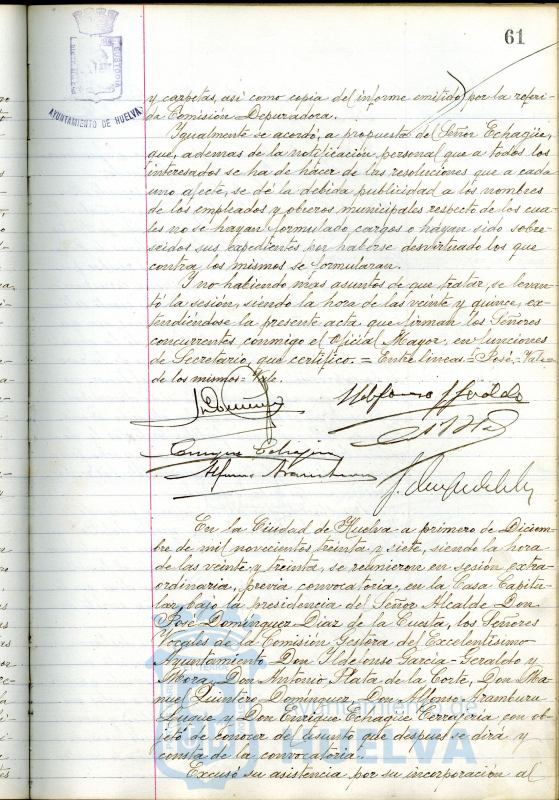 61
AYUNTAMIENTO DE HUELVA
y carpetas, así como copia del informe emitido por la referi-
da Comisión Depuradora.
Igualmente se acordó, a propuesta del Señor Echagüe,
que, además de la notificación personal que a todos los
interesados se ha de hacer de las resoluciones que a cada
uno afecte, se dé la debida publicidad a los nombres
de los empleados y obreros municipales respecto de los cua-
les no se hayan formulado cargos o hayan sido sobre-
seidos sus expedientes por haberse desvirtuado los que
contra los mismos se formularan.
Y no habiendo más asuntos de que tratar, se levan-
tó la sesión, siendo la hora de las veinte y quince, ex-
tendiéndose la presente acta que firman los Señores
concurrentes conmigo el Oficial Mayor, en funciones
de Secretario, que certifico. = Entre líneas = José = Vale =
de los mismos = Vale.
Ildefonso G Geraldo
Enrique Echagüe
Alfonso Aramburu
En la Ciudad de Huelva a primero de Diciem-
bre de mil novecientos treinta y siete, siendo la hora
de las veinte y treinta, se reunieron en sesión extra-
ordinaria, previa convocatoria, en la Casa Capitu-
lar, bajo la presidencia del Señor Alcalde Don
José Domínguez Díaz de la Cuesta, los Señores
Vocales de la Comisión Gestora del Excelentísimo
Ayuntamiento, Don Ildefonso García-Geraldo y
Mora, Don Antonio Plata de la Corte, Don Ma-
nuel Quintero Domínguez, Don Alfonso Aramburu
Luque y Don Enrique Echagüe Cerrajería con ob-
jeto de conocer del asunto que después se dirá y
consta de la convocatoria.
Excusó su asistencia por su incorporación al
Ayuntamiento de
HUELVA